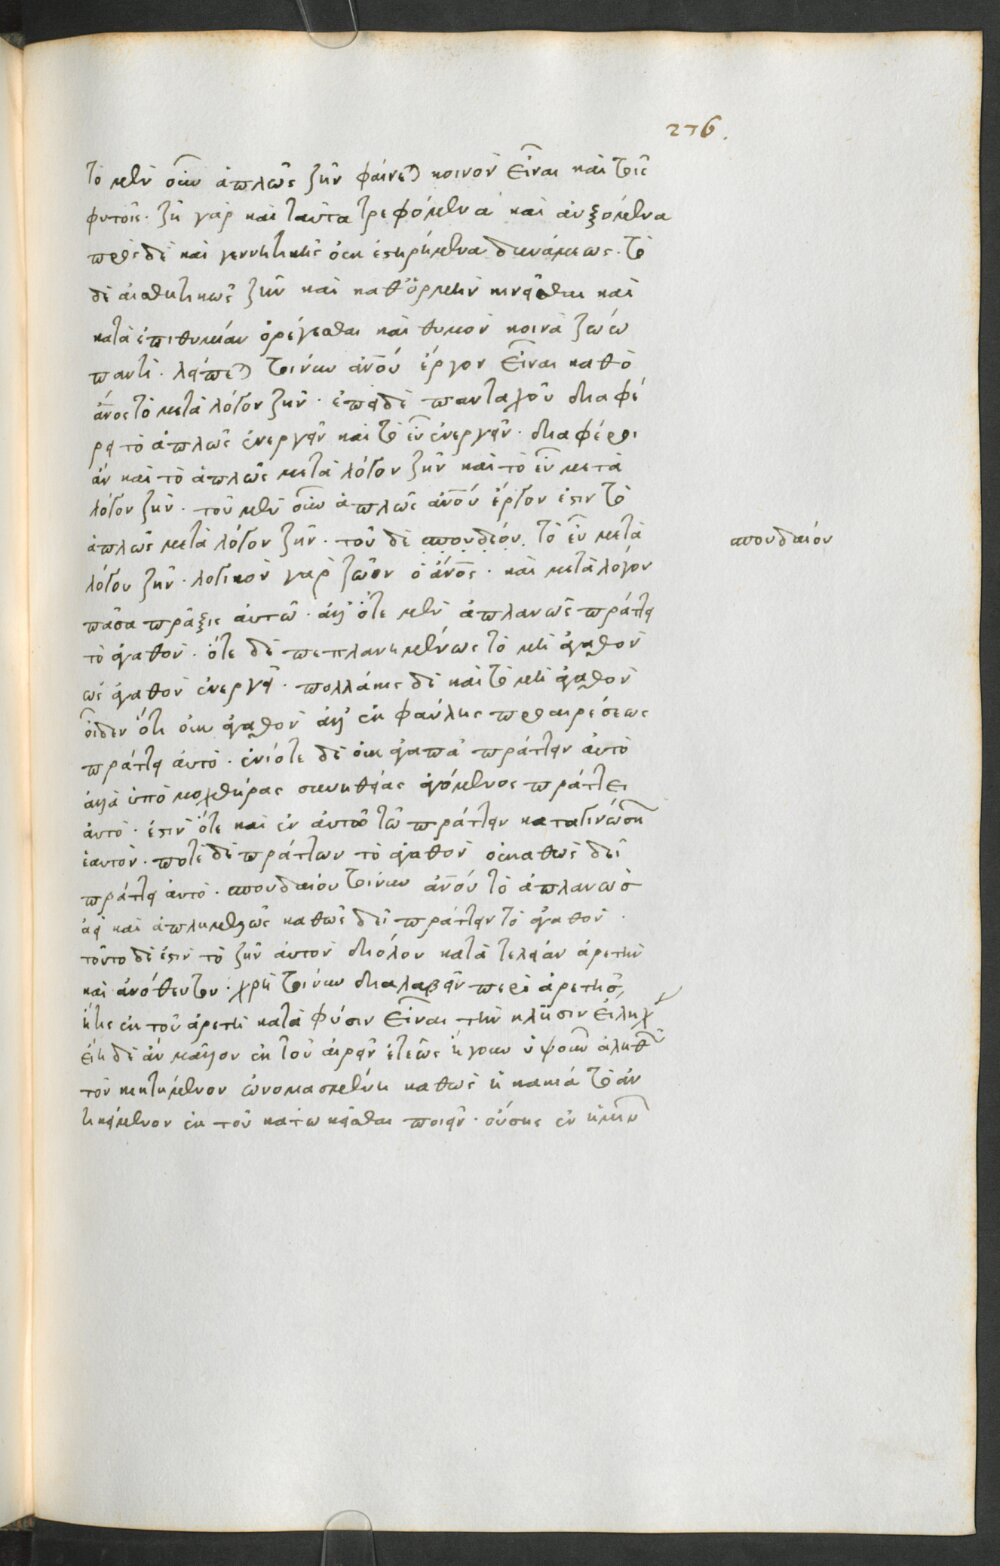 276.
τὸ μὲν οὖν ἁπλῶς ζῆν φαίνεται κοινὸν εἶναι καὶ τοῖς
φυτοῖς· ζῆ γὰρ καὶ ταῦτα τρεφόμενα καὶ αὐξόμενα
πρὸς δὲ καὶ γεννητικῆς οὐκ ἐστερημένα δυνάμεως· τὸ
δὲ αἰσθητικῶς ζῆν καὶ καθ' ὁρμὴν κινεῖσθαι καὶ
κατὰ ἐπιθυμίαν ὀρέγεσθαι καὶ θυμὸν κοινὰ ζώω
παντί· λείπεται τοίνυν ἀνου ἔργον εἶναι καθὸ
ἄνος τὸ μετὰ λόγου ζῆν· ἐπεὶ δὲ πανταχοῦ διαφέ
ρει τὸ ἁπλῶς ἐνεργεῖν καὶ τὸ εὖ ἐνεργεῖν· διαφέροι
ἂν καὶ τὸ ἁπλῶς μετὰ λόγου ζῆν καὶ τὸ εὖ μετὰ
λόγου ζῆν· τοῦ μὲν οὖν ἁπλῶς ἀνου ἔργον ἐστὶν τὸ
ἁπλῶς μετὰ λόγου ζῆν· τοῦ δὲ σπουδέου τὸ εὖ μετὰ
σπουδαίου
λόγου ζῆν· λογικὸν γὰρ ζῶον ὁ ἄνος· καὶ μετὰ λόγου
πᾶσα πρᾶξις αὐτῶ· ἀλλ' ὁτὲ μὲν ἀπλανῶς πράττει
τὸ ἀγαθόν· ὁτὲ δὲ πεπλανημένως τὸ μὴ ἀγαθὸν
ὡς ἀγαθὸν ἐνεργεῖ· πολλάκις δὲ καὶ τὸ μὴ ἀγαθὸν
οἶδεν ὅτι οὐκ ἀγαθὸν ἀλλ' ἐκ φαύλης προαιρέσεως
πράττει αὐτό· ἐνίοτε δὲ οὐκ ἀγαπᾶ πράττειν αὐτὸ
ἀλλὰ ὑπὸ μοχθηρᾶς συνηθείας ἀγόμενος πράττει
αὐτό· ἔστιν ὅτε καὶ ἐν αὐτῶ τῶ πράττειν καταγινώσκει
ἑαυτόν· ποτὲ δὲ πράττων τὸ ἀγαθὸν οὐ καθὼς δεῖ
πράττει αὐτό· σπουδαίου τοίνυν ἀνου τὸ ἀπλανῶς
ἀεὶ καὶ ἀπλημμελῶς καθὼς δεῖ πράττειν τὸ ἀγαθόν·
τοῦτο δέ ἐστιν τὸ ζῆν αὐτὸν διόλου κατὰ τελείαν ἀρετὴν
καὶ ἀνόθευτον· χρὴ τοίνυν διαλαβεῖν περὶ ἀρετῆς,
ἥτις ἐκ τοῦ ἀρετὴ κατὰ φύσιν εἶναι τὴν κλῆσιν εἴληχ
εἴη δὲ ἂν μᾶλλον ἐκ τοῦ αἴρειν ἑτέως ἤγουν ὑψοῦν ἀληθ
τὸν κεκτημένον ὠνομασμένη καθὼς ἡ κακία τὸ ἀν
τικείμενον ἐκ τοῦ κάτω κεῖσθαι ποιεῖν· οὔσης ἐν ἡμῖν